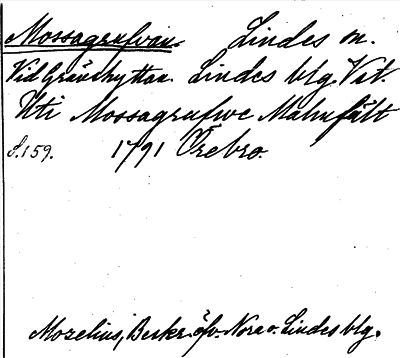 Mossagrufvan. Lindes sn.
Vid Gränshyttan. Lindes blg. Vst.
Uti Mossagrufwe Malmfält
S. 159. 1791 Örebro.
Mozelius, Beskr. öfv. Nora o. Lindes blg.